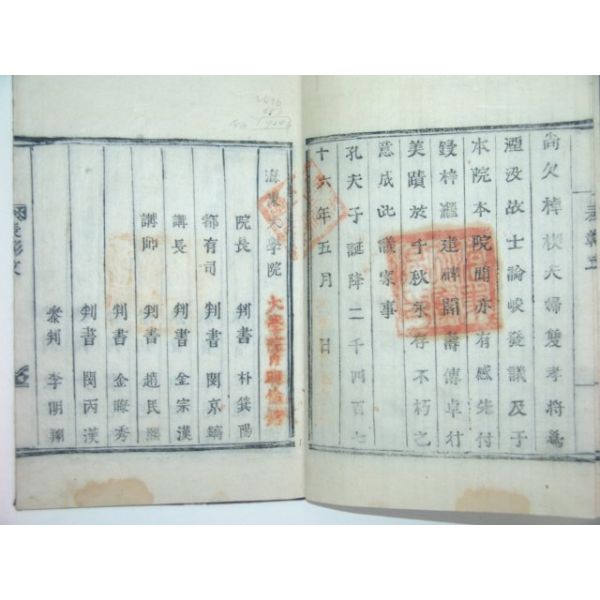 尙欠棹楔夫婦雙孝將爲
湮没故士論峻發議及于
本院本院聞亦有感先付
鋟梓繼建碑閣壽傳卓行
美蹟於千秋永存不朽之
意成此議案事
孔夫子誕降二千四百七
十六年五月 日
大學院
院長 判書 朴箕陽
都有司 判書 閔京鎬
講長 判書 金宗漢
講師 判書 趙民熙
判書 金晦秀
判書 閔丙漢
參判 李明翔
彰文